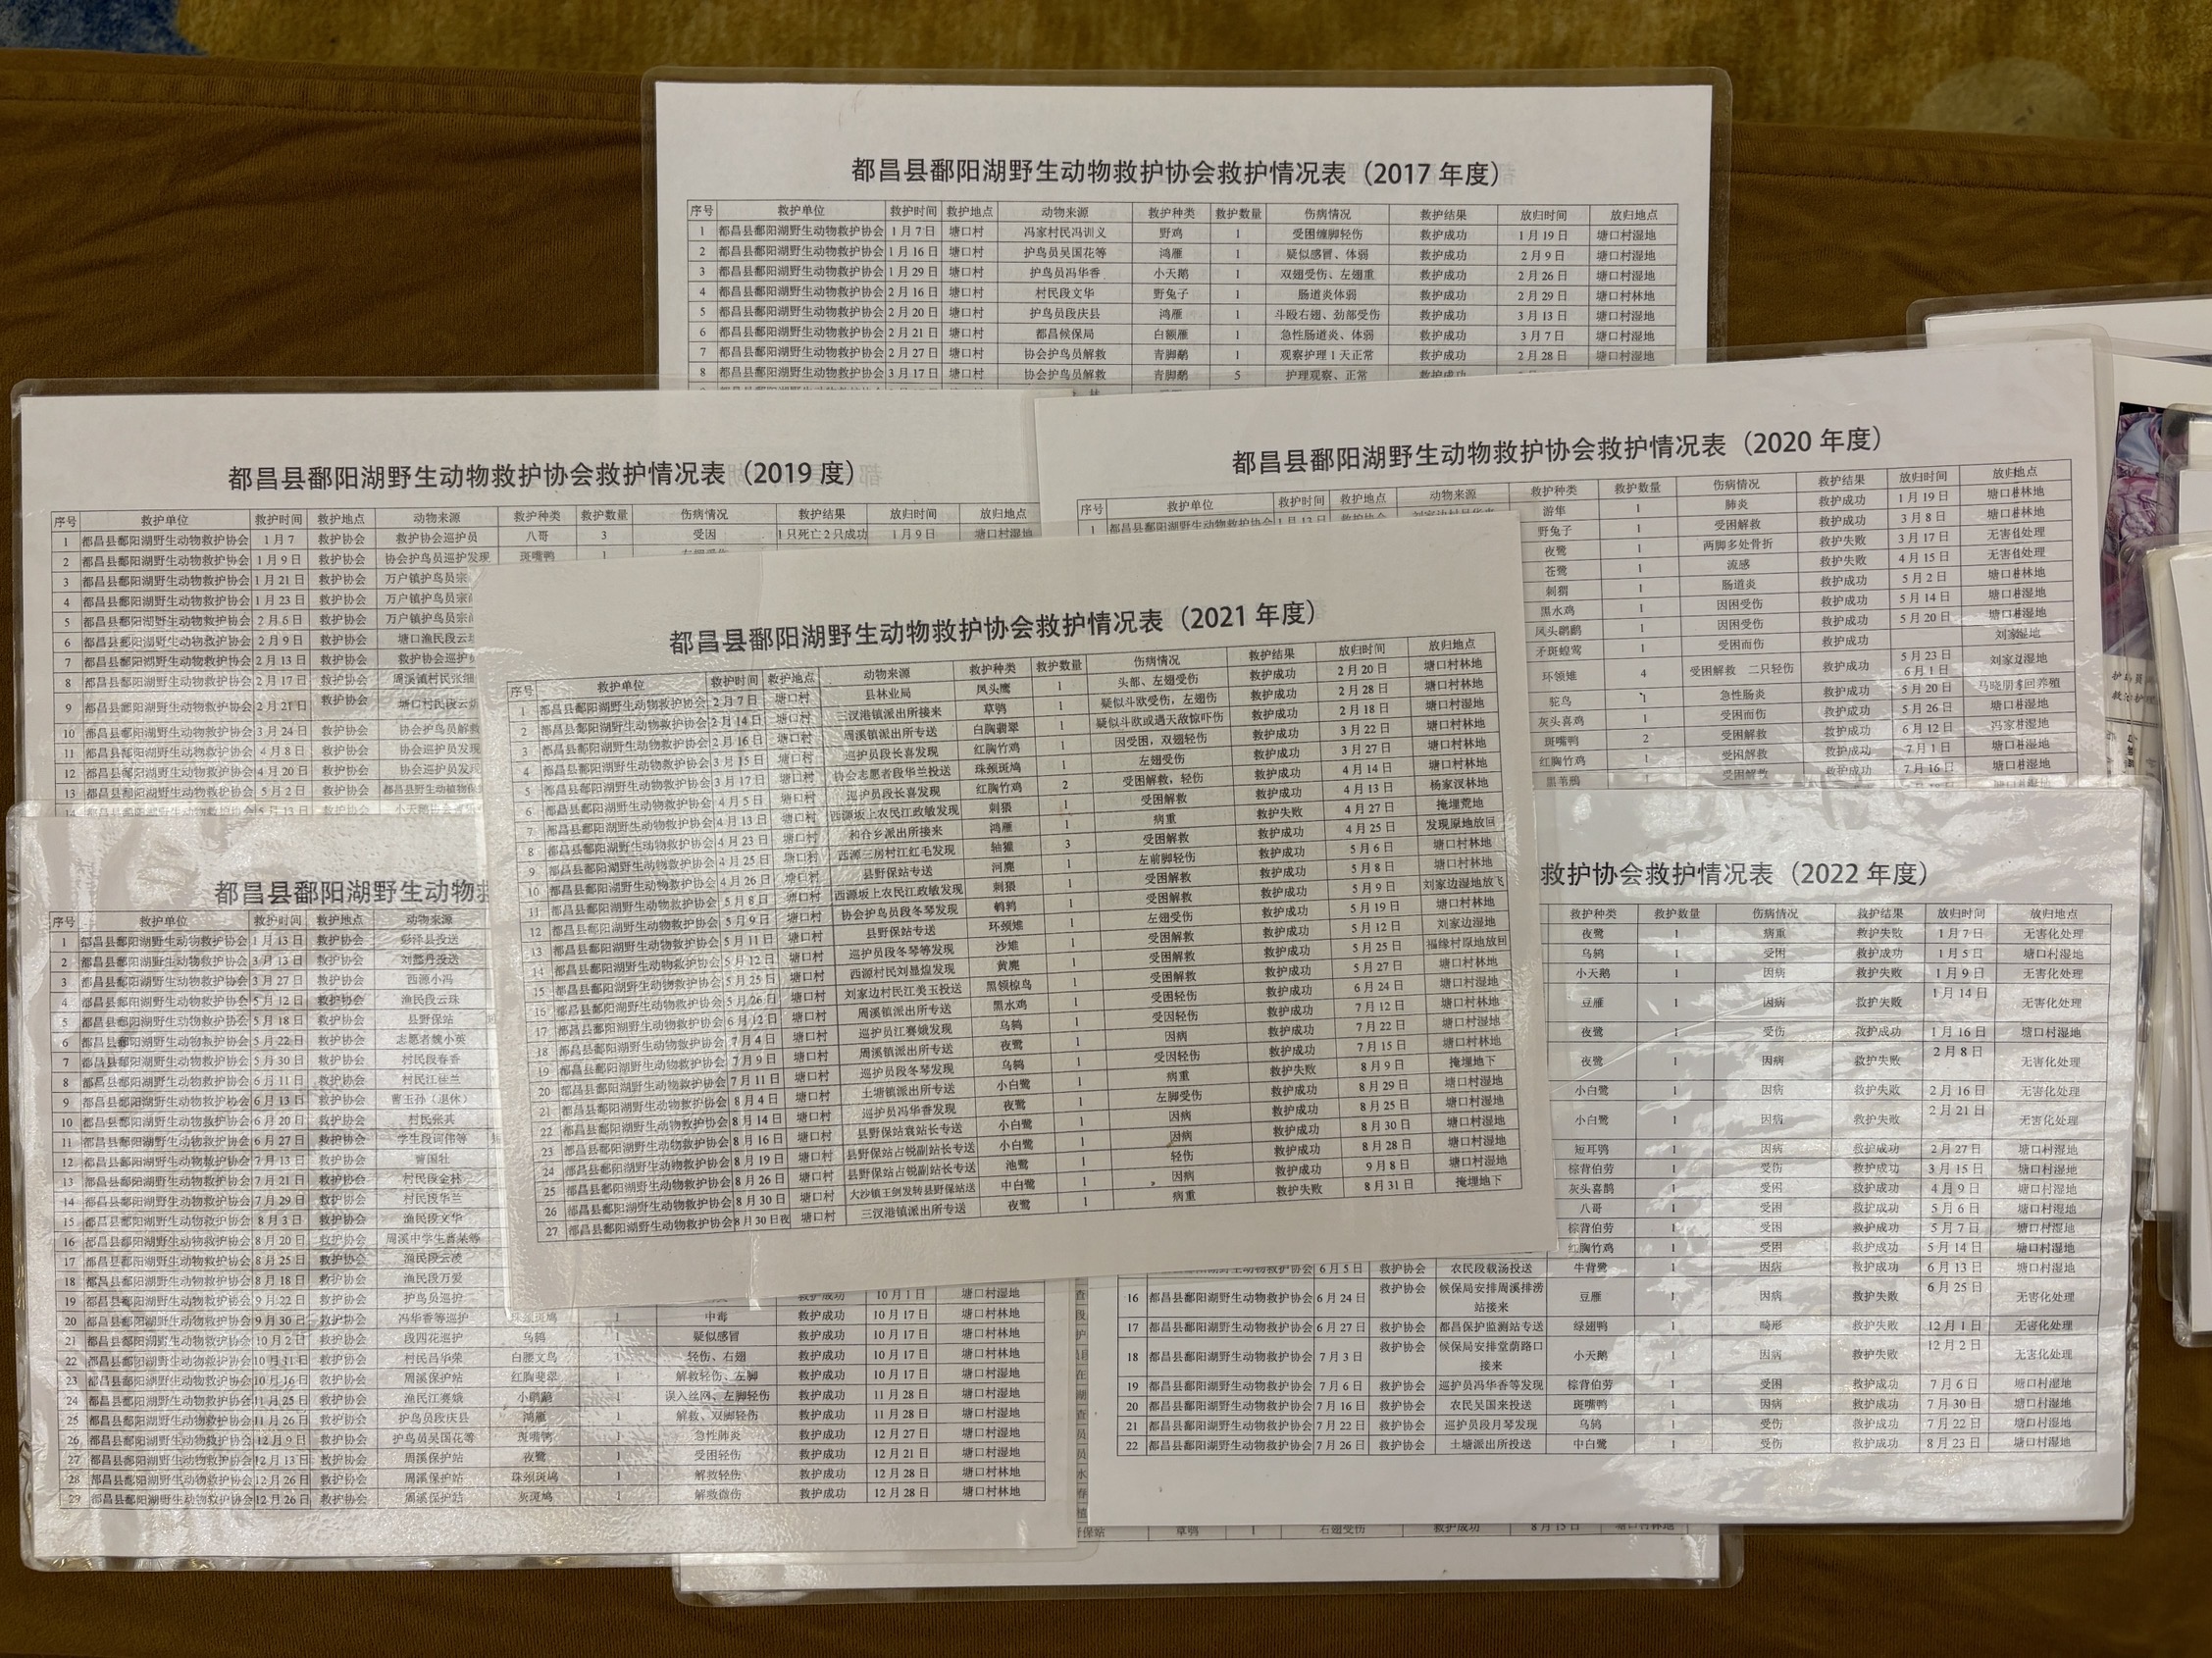 都昌县鄱阳湖野生动物救护协会救护情况表（2017 年度）
序号 救护单位 救护时间 救护地点 动物来源 救护种类 救护数量 伤病情况 救护结果 放归时间 放归地点
1 都昌县鄱阳湖野生动物救护协会 1 月 7 日 塘口村 冯家村民冯训义 野鸡 1 受困缠脚轻伤 救护成功 1 月 19 日 塘口村湿地
2 都昌县鄱阳湖野生动物救护协会 1 月 16 日 塘口村 护鸟员吴国花等 鸿雁 1 疑似感冒、体弱 救护成功 2 月 9 日 塘口村湿地
3 都昌县鄱阳湖野生动物救护协会 1 月 29 日 塘口村 护鸟员冯华香 小天鹅 1 双翅受伤、左翅重 救护成功 2 月 26 日 塘口村湿地
4 都昌县鄱阳湖野生动物救护协会 2 月 16 日 塘口村 村民段文华 野兔子 1 肠道炎体弱 救护成功 2 月 29 日 塘口村林地
5 都昌县鄱阳湖野生动物救护协会 2 月 20 日 塘口村 护鸟员段庆县 鸿雁 1 斗殴右翅、劲部受伤 救护成功 3 月 13 日 塘口村湿地
6 都昌县鄱阳湖野生动物救护协会 2 月 21 日 塘口村 都昌候保局 白额雁 1 急性肠道炎、体弱 救护成功 3 月 7 日 塘口村湿地
7 都昌县鄱阳湖野生动物救护协会 2 月 27 日 塘口村 协会护鸟员解救 青脚鹬 1 观察护理 1 天正常 救护成功 2 月 28 日 塘口村湿地
8 都昌县鄱阳湖野生动物救护协会 3 月 17 日 塘口村 协会护鸟员解救 青脚鹬 5 护理观察、正常 救护成功
都昌县鄱阳湖野生动物救护协会救护情况表（2019 度）
序号 救护单位 救护时间 救护地点 动物来源 救护种类 救护数量 伤病情况 救护结果 放归时间 放归地点
1 都昌县鄱阳湖野生动物救护协会 1 月 7 救护协会 救护协会巡护员 八哥 3 受因 1 只死亡 2 只成功 1 月 9 日 塘口村湿地
2 都昌县鄱阳湖野生动物救护协会 1 月 9 日 救护协会 协会护鸟员巡护发现 斑嘴鸭 1
3 都昌县鄱阳湖野生动物救护协会 1 月 21 日 救护协会 万户镇护鸟员宗
4 都昌县鄱阳湖野生动物救护协会 1 月 23 日 救护协会 万户镇护鸟员宗
5 都昌县鄱阳湖野生动物救护协会 2 月 6 日 救护协会 万户镇护鸟员宗
6 都昌县鄱阳湖野生动物救护协会 2 月 9 日 救护协会 塘口渔民段云
7 都昌县鄱阳湖野生动物救护协会 2 月 13 日 救护协会 救护协会巡护
8 都昌县鄱阳湖野生动物救护协会 2 月 17 日 救护协会 周溪镇村民张细
9 都昌县鄱阳湖野生动物救护协会 2 月 21 日 救护协会 塘口村民段云
10 都昌县鄱阳湖野生动物救护协会 3 月 24 日 救护协会 协会护鸟员解救
11 都昌县鄱阳湖野生动物救护协会 4 月 8 日 救护协会 协会巡护员发现
12 都昌县鄱阳湖野生动物救护协会 4 月 20 日 救护协会 协会巡护员发现
13 都昌县鄱阳湖野生动物救护协会 5 月 2 日 救护协会 都昌县野生动植物保
都昌县鄱阳湖野生动物救护协会救护情况表（2020 年度）
序号 救护单位 救护时间 救护地点 动物来源 救护种类 救护数量 伤病情况 救护结果 放归时间 放归地点
游隼 1 肺炎 救护成功 1 月 19 日 塘口村林地
野兔子 1 受困解救 救护成功 3 月 8 日 塘口村林地
夜鹭 1 两脚多处骨折 救护失败 3 月 17 日 无害化处理
苍鹭 1 流感 救护失败 4 月 15 日 无害化处理
刺猬 1 肠道炎 救护成功 5 月 2 日 塘口村林地
黑水鸡 1 因困受伤 救护成功 5 月 14 日 塘口村湿地
凤头鸊鷉 1 因困受伤 救护成功 5 月 20 日 塘口村湿地
矛斑蝗莺 1 受困而伤 救护成功 刘家湿地
环领雉 4 受困解救 二只轻伤 救护成功 5 月 23 日 6 月 1 日 刘家边湿地
鸵鸟 1 急性肠炎 救护成功 5 月 20 日 马晓朋拿回养殖
灰头喜鸡 1 受困而伤 救护成功 5 月 26 日 塘口村湿地
斑嘴鸭 2 受困解救 救护成功 6 月 12 日
红胸竹鸡 1 受困解救 救护成功 7 月 1 日 塘口村湿地
黑苇鳽 1 受困解救 救护成功 7 月 16 日 塘口村湿地
都昌县鄱阳湖野生动物救护协会救护情况表（2021 年度）
序号 救护单位 救护时间 救护地点 动物来源 救护种类 救护数量 伤病情况 救护结果 放归时间 放归地点
1 都昌县鄱阳湖野生动物救护协会 2 月 7 日 塘口村 县林业局 凤头鹰 1 头部、左翅受伤 救护成功 2 月 20 日 塘口村林地
2 都昌县鄱阳湖野生动物救护协会 2 月 14 日 塘口村 三汊港镇派出所接来 草鸮 1 疑似斗欧受伤，左翅伤 救护成功 2 月 28 日 塘口村林地
3 都昌县鄱阳湖野生动物救护协会 2 月 16 日 塘口村 周溪镇派出所专送 白胸翡翠 1 疑似斗欧或遇天敌惊吓伤 救护成功 2 月 18 日 塘口村湿地
4 都昌县鄱阳湖野生动物救护协会 3 月 15 日 塘口村 巡护员段长喜发现 红胸竹鸡 1 因受困，双翅轻伤 救护成功 3 月 22 日 塘口村林地
5 都昌县鄱阳湖野生动物救护协会 3 月 17 日 塘口村 协会志愿者段华兰投送 珠颈斑鸠 1 左翅受伤 救护成功 3 月 27 日 塘口村林地
6 都昌县鄱阳湖野生动物救护协会 4 月 5 日 塘口村 巡护员段长喜发现 红胸竹鸡 2 受困解救，轻伤 救护成功 4 月 14 日 塘口村林地
7 都昌县鄱阳湖野生动物救护协会 4 月 13 日 塘口村 西源坂上农民江政敏发现 刺猬 1 受困解救 救护成功 4 月 13 日 杨家汊林地
8 都昌县鄱阳湖野生动物救护协会 4 月 23 日 塘口村 和合乡派出所接来 鸿雁 1 病重 救护失败 4 月 27 日 掩埋荒地
9 都昌县鄱阳湖野生动物救护协会 4 月 25 日 塘口村 西源三房村江红毛发现 3 受困解救 救护成功 4 月 25 日 发现原地放回
10 都昌县鄱阳湖野生动物救护协会 4 月 26 日 塘口村 县野保站专送 河麂 1 左前脚轻伤 救护成功 5 月 6 日 塘口村林地
11 都昌县鄱阳湖野生动物救护协会 5 月 8 日 塘口村 西源坂上农民江政敏发现 刺猬 1 受困解救 救护成功 5 月 8 日 塘口村林地
12 都昌县鄱阳湖野生动物救护协会 5 月 9 日 塘口村 协会护鸟员段冬琴发现 鹌鹑 1 受困解救 救护成功 5 月 9 日 刘家边湿地放飞
13 都昌县鄱阳湖野生动物救护协会 5 月 11 日 塘口村 县野保站专送 环颈雉 1 左翅受伤 救护成功 5 月 19 日 塘口村林地
14 都昌县鄱阳湖野生动物救护协会 5 月 12 日 塘口村 巡护员段冬琴等发现 沙雉 1 受困解救 救护成功 5 月 12 日 刘家边湿地
15 都昌县鄱阳湖野生动物救护协会 5 月 25 日 塘口村 西源村民刘显煌发现 黄麂 1 受困解救 救护成功 5 月 25 日 福缘村原地放回
16 都昌县鄱阳湖野生动物救护协会 5 月 26 日 塘口村 刘家边村民江美玉投送 黑领椋鸟 1 受困解救 救护成功 5 月 27 日 塘口村林地
17 都昌县鄱阳湖野生动物救护协会 6 月 12 日 塘口村 周溪镇派出所专送 黑水鸡 1 受困轻伤 救护成功 6 月 24 日 塘口村湿地
18 都昌县鄱阳湖野生动物救护协会 7 月 4 日 塘口村 巡护员江赛娥发现 乌鸫 1 受因轻伤 救护成功 7 月 12 日 塘口村林地
19 都昌县鄱阳湖野生动物救护协会 7 月 9 日 塘口村 周溪镇派出所专送 夜鹭 1 因病 救护成功 7 月 22 日 塘口村湿地
20 都昌县鄱阳湖野生动物救护协会 7 月 11 日 塘口村 巡护员段冬琴发现 乌鸫 1 受因轻伤 救护成功 7 月 15 日 塘口村林地
21 都昌县鄱阳湖野生动物救护协会 8 月 4 日 塘口村 土塘镇派出所专送 小白鹭 1 病重 救护失败 8 月 9 日 掩埋地下
22 都昌县鄱阳湖野生动物救护协会 8 月 14 日 塘口村 巡护员冯华香发现 夜鹭 1 左脚受伤 救护成功 8 月 29 日 塘口村湿地
23 都昌县鄱阳湖野生动物救护协会 8 月 16 日 塘口村 县野保站袁站长专送 小白鹭 1 因病 救护成功 8 月 25 日 塘口村湿地
24 都昌县鄱阳湖野生动物救护协会 8 月 19 日 塘口村 县野保站占锐副站长专送 小白鹭 1 因病 救护成功 8 月 30 日 塘口村湿地
25 都昌县鄱阳湖野生动物救护协会 8 月 26 日 塘口村 县野保站占锐副站长专送 池鹭 1 轻伤 救护成功 8 月 28 日 塘口村湿地
26 都昌县鄱阳湖野生动物救护协会 8 月 30 日 塘口村 大沙镇王剑发转县野保站送 中白鹭 1 因病 救护成功 9 月 8 日 塘口村湿地
27 都昌县鄱阳湖野生动物救护协会 8 月 30 日夜 塘口村 三汊港镇派出所专送 夜鹭 1 病重 救护失败 8 月 31 日 掩埋地下
都昌县鄱阳湖野生动物
序号 救护单位 救护时间 救护地点 动物来源
1 都昌县鄱阳湖野生动物救护协会 1 月 13 日 救护协会 彭泽县投送
2 都昌县鄱阳湖野生动物救护协会 3 月 13 日 救护协会 刘懿丹投送
3 都昌县鄱阳湖野生动物救护协会 3 月 27 日 救护协会 西源小冯
4 都昌县鄱阳湖野生动物救护协会 5 月 12 日 救护协会 渔民段云珠
5 都昌县鄱阳湖野生动物救护协会 5 月 18 日 救护协会 县野保站
6 都昌县鄱阳湖野生动物救护协会 5 月 22 日 救护协会 志愿者魏小英
7 都昌县鄱阳湖野生动物救护协会 5 月 30 日 救护协会 村民段春香
8 都昌县鄱阳湖野生动物救护协会 6 月 11 日 救护协会 村民江桂兰
9 都昌县鄱阳湖野生动物救护协会 6 月 13 日 救护协会 曹玉孙（退休）
10 都昌县鄱阳湖野生动物救护协会 6 月 20 日 救护协会 村民张其
11 都昌县鄱阳湖野生动物救护协会 6 月 27 日 救护协会 学生段诃伟等
12 都昌县鄱阳湖野生动物救护协会 7 月 13 日 救护协会 曹国牡
13 都昌县鄱阳湖野生动物救护协会 7 月 21 日 救护协会 村民段金林
14 都昌县鄱阳湖野生动物救护协会 7 月 29 日 救护协会 村民段华兰
15 都昌县鄱阳湖野生动物救护协会 8 月 3 日 救护协会 渔民段文华
16 都昌县鄱阳湖野生动物救护协会 8 月 20 日 救护协会 周溪中学生曹某等
17 都昌县鄱阳湖野生动物救护协会 8 月 25 日 救护协会 渔民段云凌
18 都昌县鄱阳湖野生动物救护协会 8 月 18 日 救护协会 渔民段万爱
19 都昌县鄱阳湖野生动物救护协会 9 月 22 日 救护协会 护鸟员巡护 救护成功 10 月 1 日 塘口村湿地
20 都昌县鄱阳湖野生动物救护协会 9 月 30 日 救护协会 冯华香等巡护 珠颈斑鸠 1 中毒 救护成功 10 月 17 日 塘口村林地
21 都昌县鄱阳湖野生动物救护协会 10 月 2 日 救护协会 段四花巡护 乌鸫 1 疑似感冒 救护成功 10 月 17 日 塘口村林地
22 都昌县鄱阳湖野生动物救护协会 10 月 11 日 救护协会 村民吕华荣 白腰文鸟 1 轻伤、右翅 救护成功 10 月 17 日 塘口村林地
23 都昌县鄱阳湖野生动物救护协会 10 月 16 日 救护协会 周溪保护站 红胸斐翠 1 解救轻伤、左脚 救护成功 10 月 17 日 塘口村林地
24 都昌县鄱阳湖野生动物救护协会 11 月 25 日 救护协会 渔民江赛娥 小鸊鷉 1 误入丝网、左脚轻伤 救护成功 11 月 28 日 塘口村湿地
25 都昌县鄱阳湖野生动物救护协会 11 月 26 日 救护协会 护鸟员段庆县 鸿雁 1 解救、双脚轻伤 救护成功 11 月 28 日 塘口村湿地
26 都昌县鄱阳湖野生动物救护协会 12 月 9 日 救护协会 护鸟员吴国花等 斑嘴鸭 1 急性肺炎 救护成功 12 月 27 日 塘口村湿地
27 都昌县鄱阳湖野生动物救护协会 12 月 13 日 救护协会 周溪保护站 夜鹭 1 受困轻伤 救护成功 12 月 21 日 塘口村湿地
28 都昌县鄱阳湖野生动物救护协会 12 月 26 日 救护协会 周溪保护站 珠颈斑鸠 1 解救轻伤 救护成功 12 月 28 日 塘口村林地
29 都昌县鄱阳湖野生动物救护协会 12 月 26 日 救护协会 周溪保护站 灰斑鸠 1 解救微伤 救护成功 12 月 28 日 塘口村林地
救护协会救护情况表（2022 年度）
救护种类 救护数量 伤病情况 救护结果 放归时间 放归地点
夜鹭 1 病重 救护失败 1 月 7 日 无害化处理
乌鸫 1 受困 救护成功 1 月 5 日 塘口村湿地
小天鹅 1 因病 救护失败 1 月 9 日 无害化处理
豆雁 1 因病 救护失败 1 月 14 日 无害化处理
夜鹭 1 受伤 救护成功 1 月 16 日 塘口村湿地
夜鹭 1 因病 救护失败 2 月 8 日 无害化处理
小白鹭 1 因病 救护失败 2 月 16 日 无害化处理
小白鹭 1 因病 救护失败 2 月 21 日 无害化处理
短耳鸮 1 因病 救护成功 2 月 27 日 塘口村湿地
棕背伯劳 1 受伤 救护成功 3 月 15 日 塘口村湿地
灰头喜鹊 1 受困 救护成功 4 月 9 日 塘口村湿地
八哥 1 受困 救护成功 5 月 6 日 塘口村湿地
棕背伯劳 1 受困 救护成功 5 月 7 日 塘口村湿地
红胸竹鸡 1 受困 救护成功 5 月 14 日 塘口村湿地
都昌县鄱阳湖野生动物救护协会 6 月 5 日 救护协会 农民段载汤投送 牛背鹭 1 因病 救护成功 6 月 13 日 塘口村湿地
16 都昌县鄱阳湖野生动物救护协会 6 月 24 日 救护协会 候保局安排周溪排涝站接来 豆雁 1 因病 救护失败 6 月 25 日 无害化处理
17 都昌县鄱阳湖野生动物救护协会 6 月 27 日 救护协会 都昌保护监测站专送 绿翅鸭 1 畸形 救护失败 12 月 1 日 无害化处理
18 都昌县鄱阳湖野生动物救护协会 7 月 3 日 救护协会 候保局安排堂荫路口接来 小天鹅 1 因病 救护失败 12 月 2 日 无害化处理
19 都昌县鄱阳湖野生动物救护协会 7 月 6 日 救护协会 巡护员冯华香等发现 棕背伯劳 1 受困 救护成功 7 月 6 日 塘口村湿地
20 都昌县鄱阳湖野生动物救护协会 7 月 16 日 救护协会 农民吴国来投送 斑嘴鸭 1 因病 救护成功 7 月 30 日 塘口村湿地
21 都昌县鄱阳湖野生动物救护协会 7 月 22 日 救护协会 巡护员段月琴发现 乌鸫 1 受伤 救护成功 7 月 22 日 塘口村湿地
22 都昌县鄱阳湖野生动物救护协会 7 月 26 日 救护协会 土塘派出所投送 中白鹭 1 受伤 救护成功 8 月 23 日 塘口村湿地
草鸮 1 右翅受伤 救护成功 8 月 15 日 塘口村林地